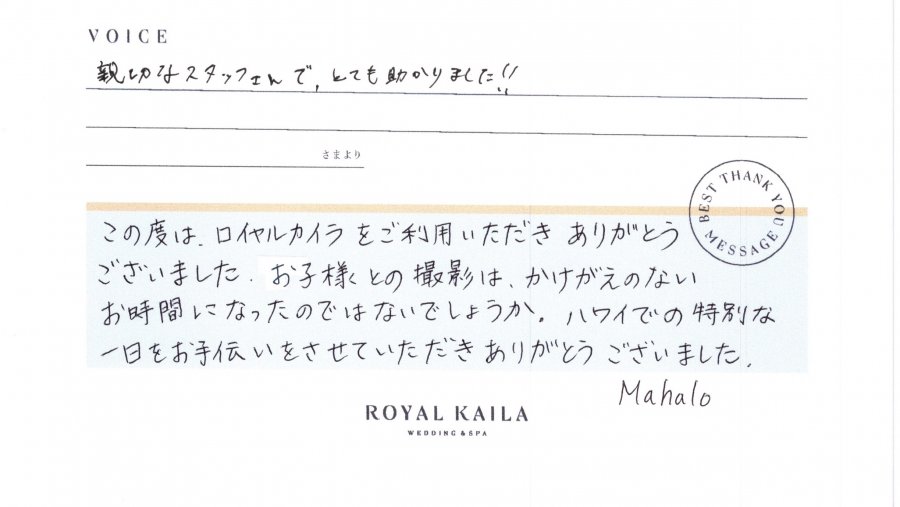 VOICE
親切なスタッフさんで、とても助かりました!!
さまより
BEST THANK YOU MESSAGE
この度は、ロイヤルカイラをご利用いただきありがとう
ございました. お子様との撮影は、かけがえのない
お時間になったのではないでしょうか。ハワイでの特別な
一日をお手伝いをさせていただきありがとうございました.
Mahalo
ROYAL KAILA
WEDDING & SPA